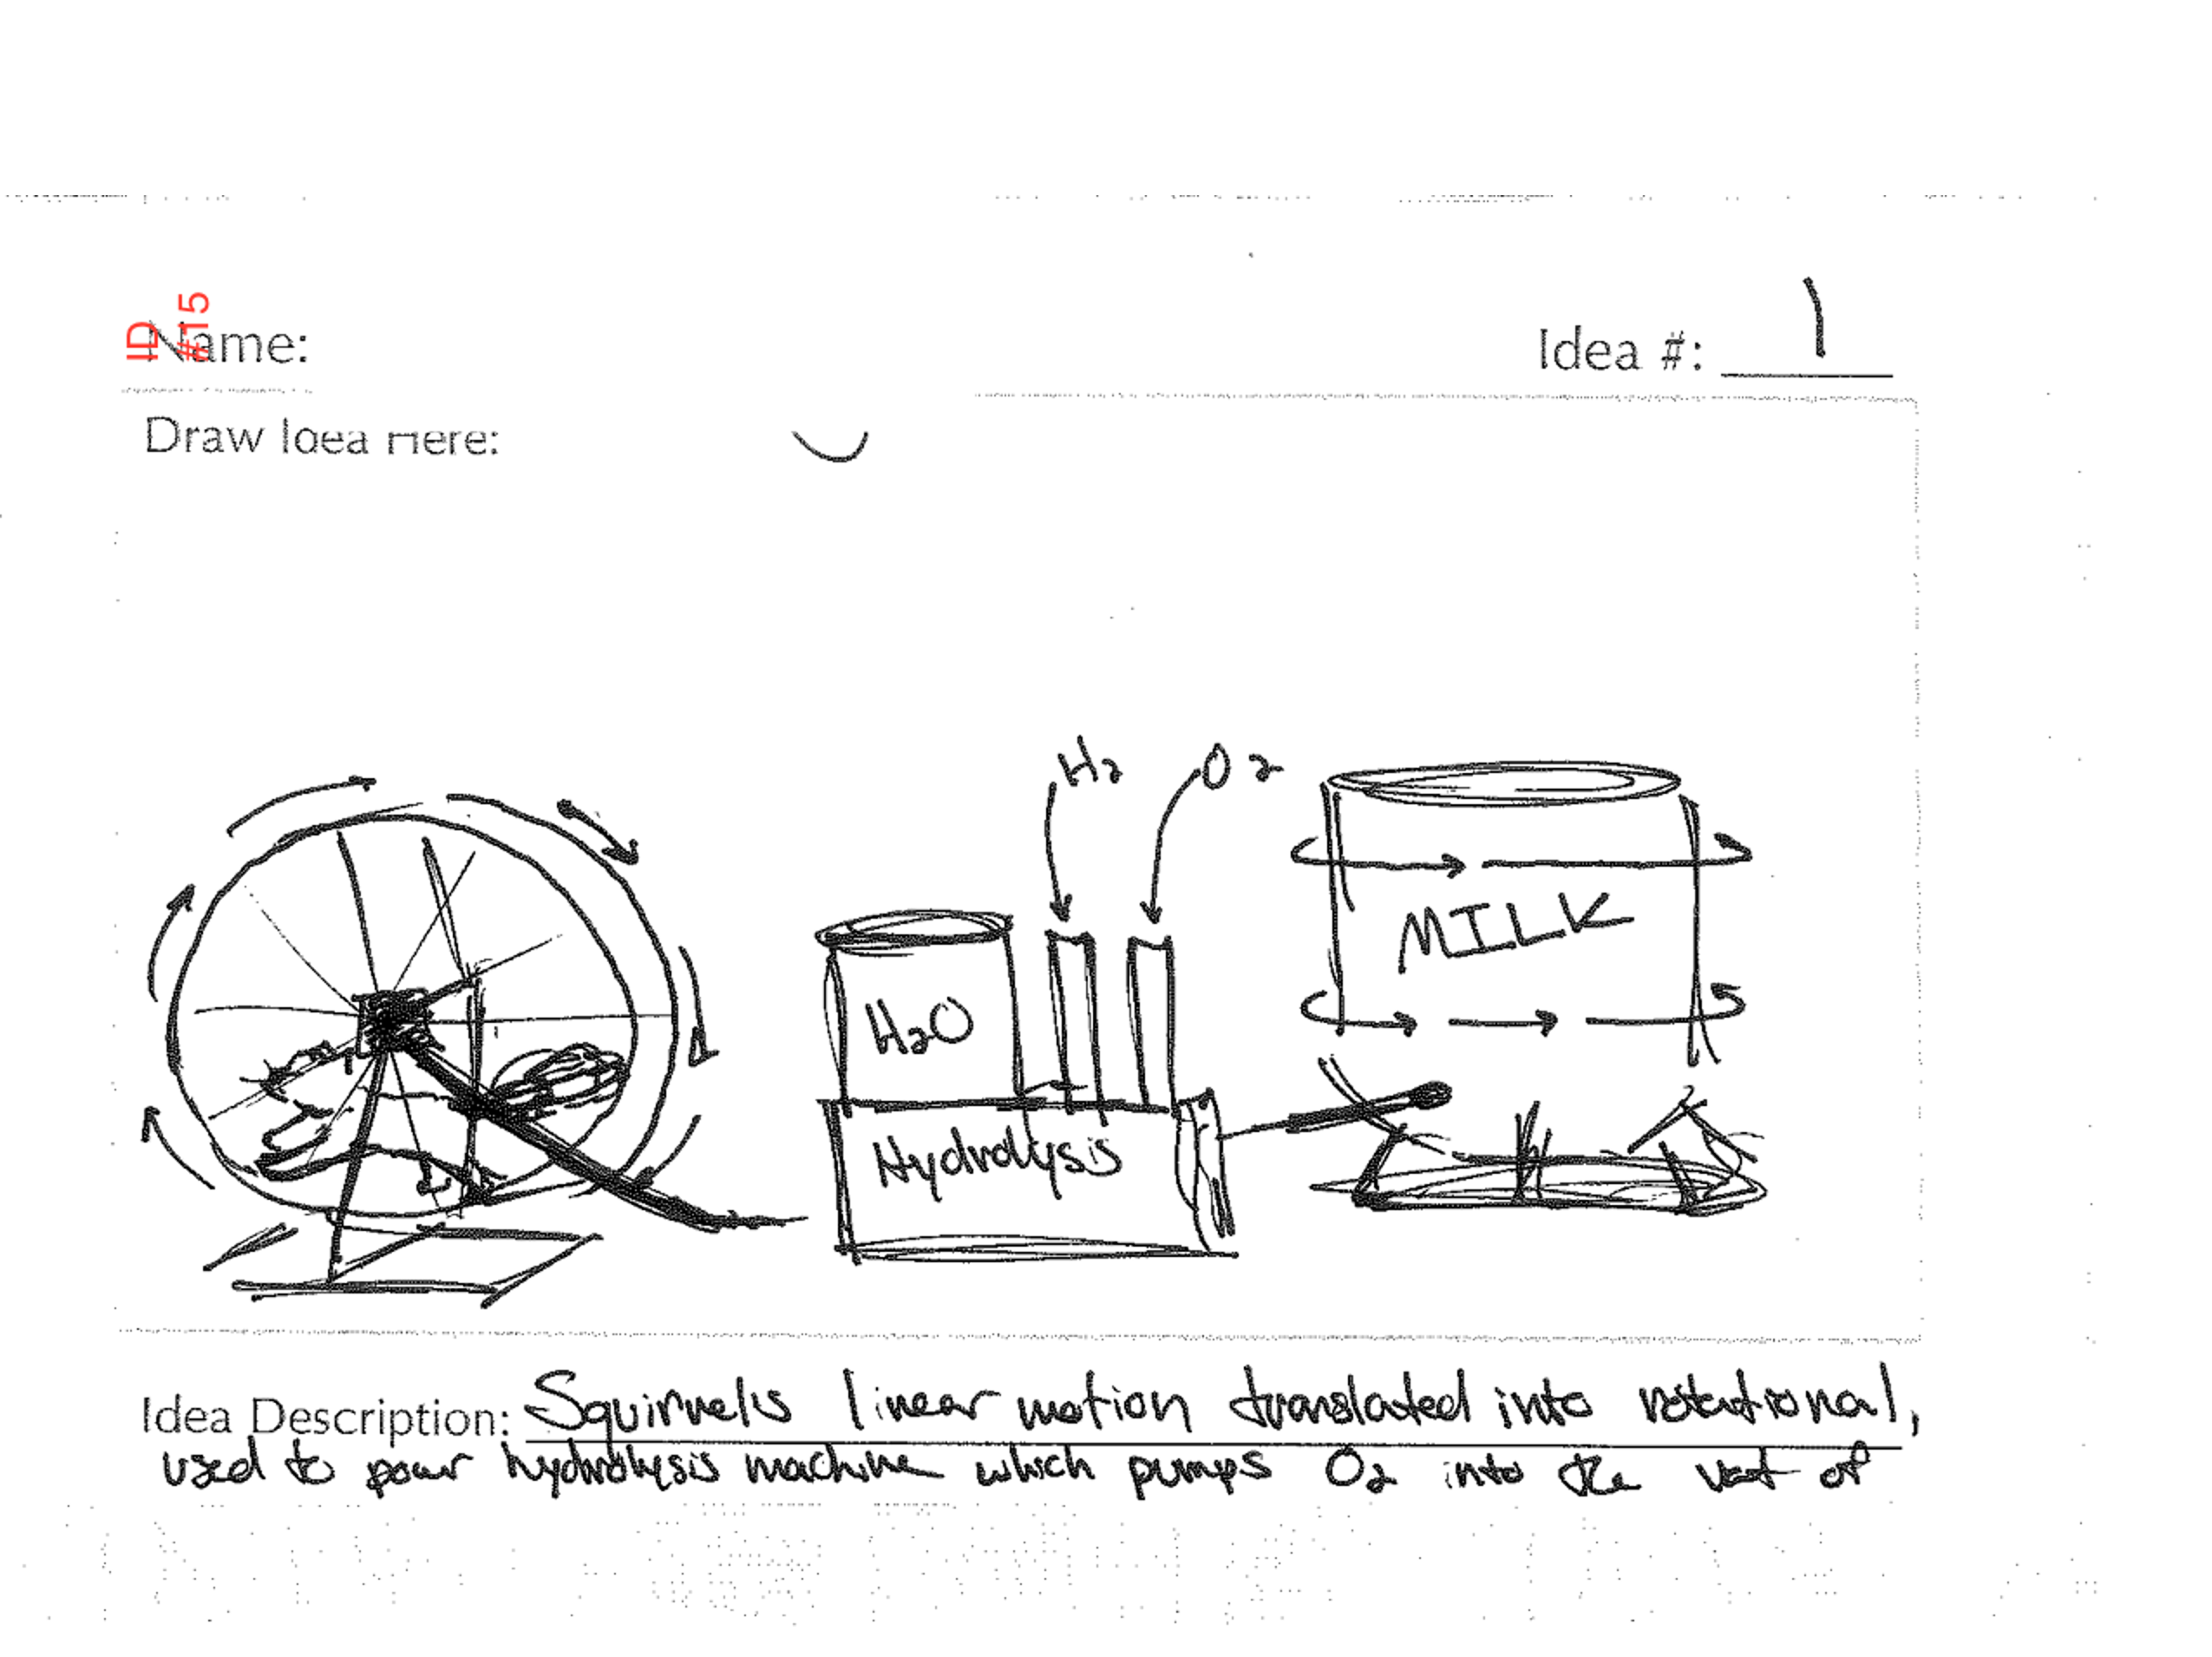 ID
#15
Name:
Idea #: 1
Draw Idea Here:
H2
O2
MILK
H2O
Hydrolysis
Idea Description: Squirrels linear motion translated into rotational,
used to power hydrolysis machine which pumps O2 into the vat of